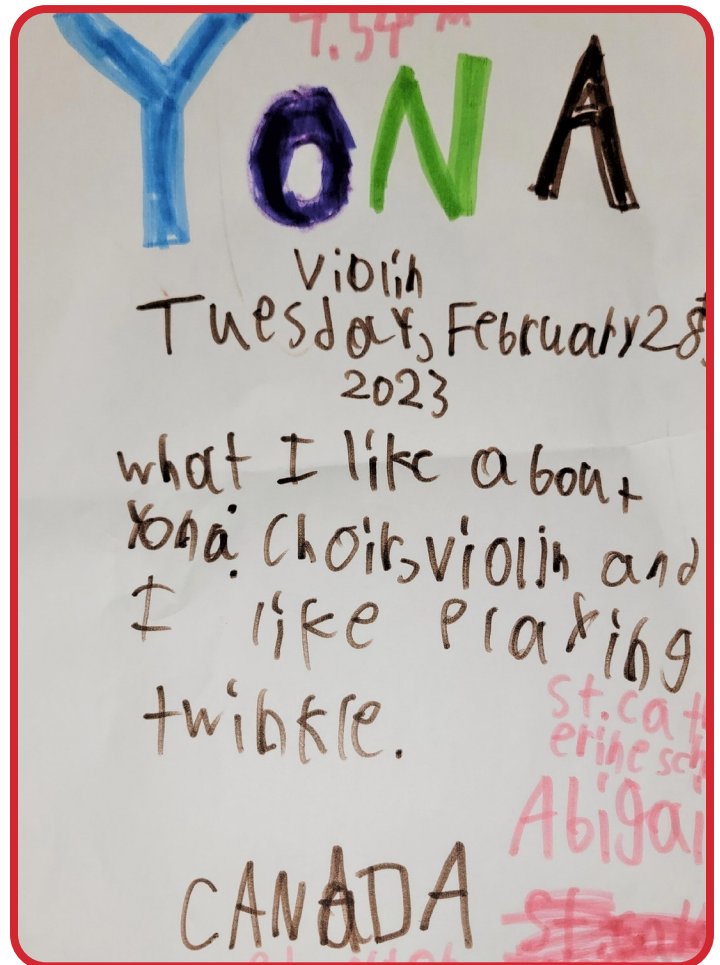 YONA
violin
Tuesday, February 28,
2023
what I like about
Yona: Choir, violin and
I like Playing
twinkle.
St. cat
erine sch
Abigai
CANADA
St.